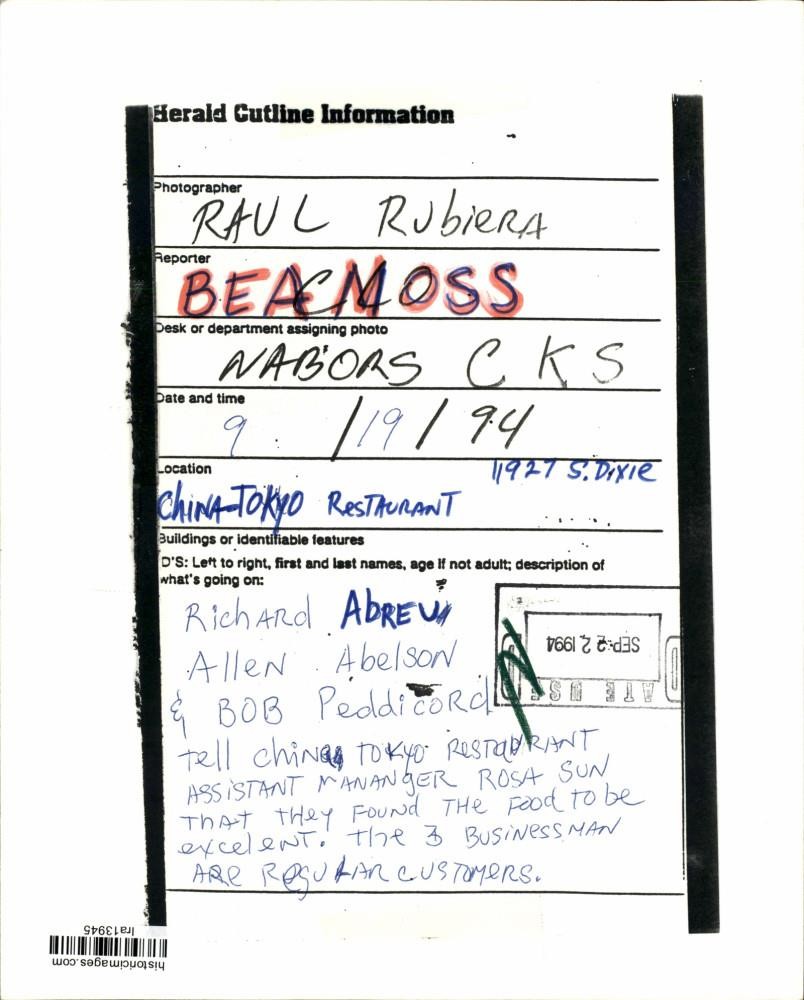 Herald Cutline Information
Photographer
RAUL RUbieRA
Reporter
BEA MOSS
Desk or department assigning photo
NABORS C K S
Date and time
9 /19/94
Location
11927 S. DIXIE
CHINA-TOKYO RESTAURANT
Buildings or identifiable features
D'S: Left to right, first and last names, age if not adult; description of
what's going on:
RichARd ABREU
Allen Abelson
& BOB PeddicoRd
SEP 22 1994
ATE USE
tell chinA TOKYO RESTAURANT
ASSISTANT MANANgER ROSA SUN
THAT THey FOUND THE FOOd TO be
excelenT. the 3 BUSINESSMAN
ARE REgULAR CUSTOMERS.
lra13945
historicimages.com